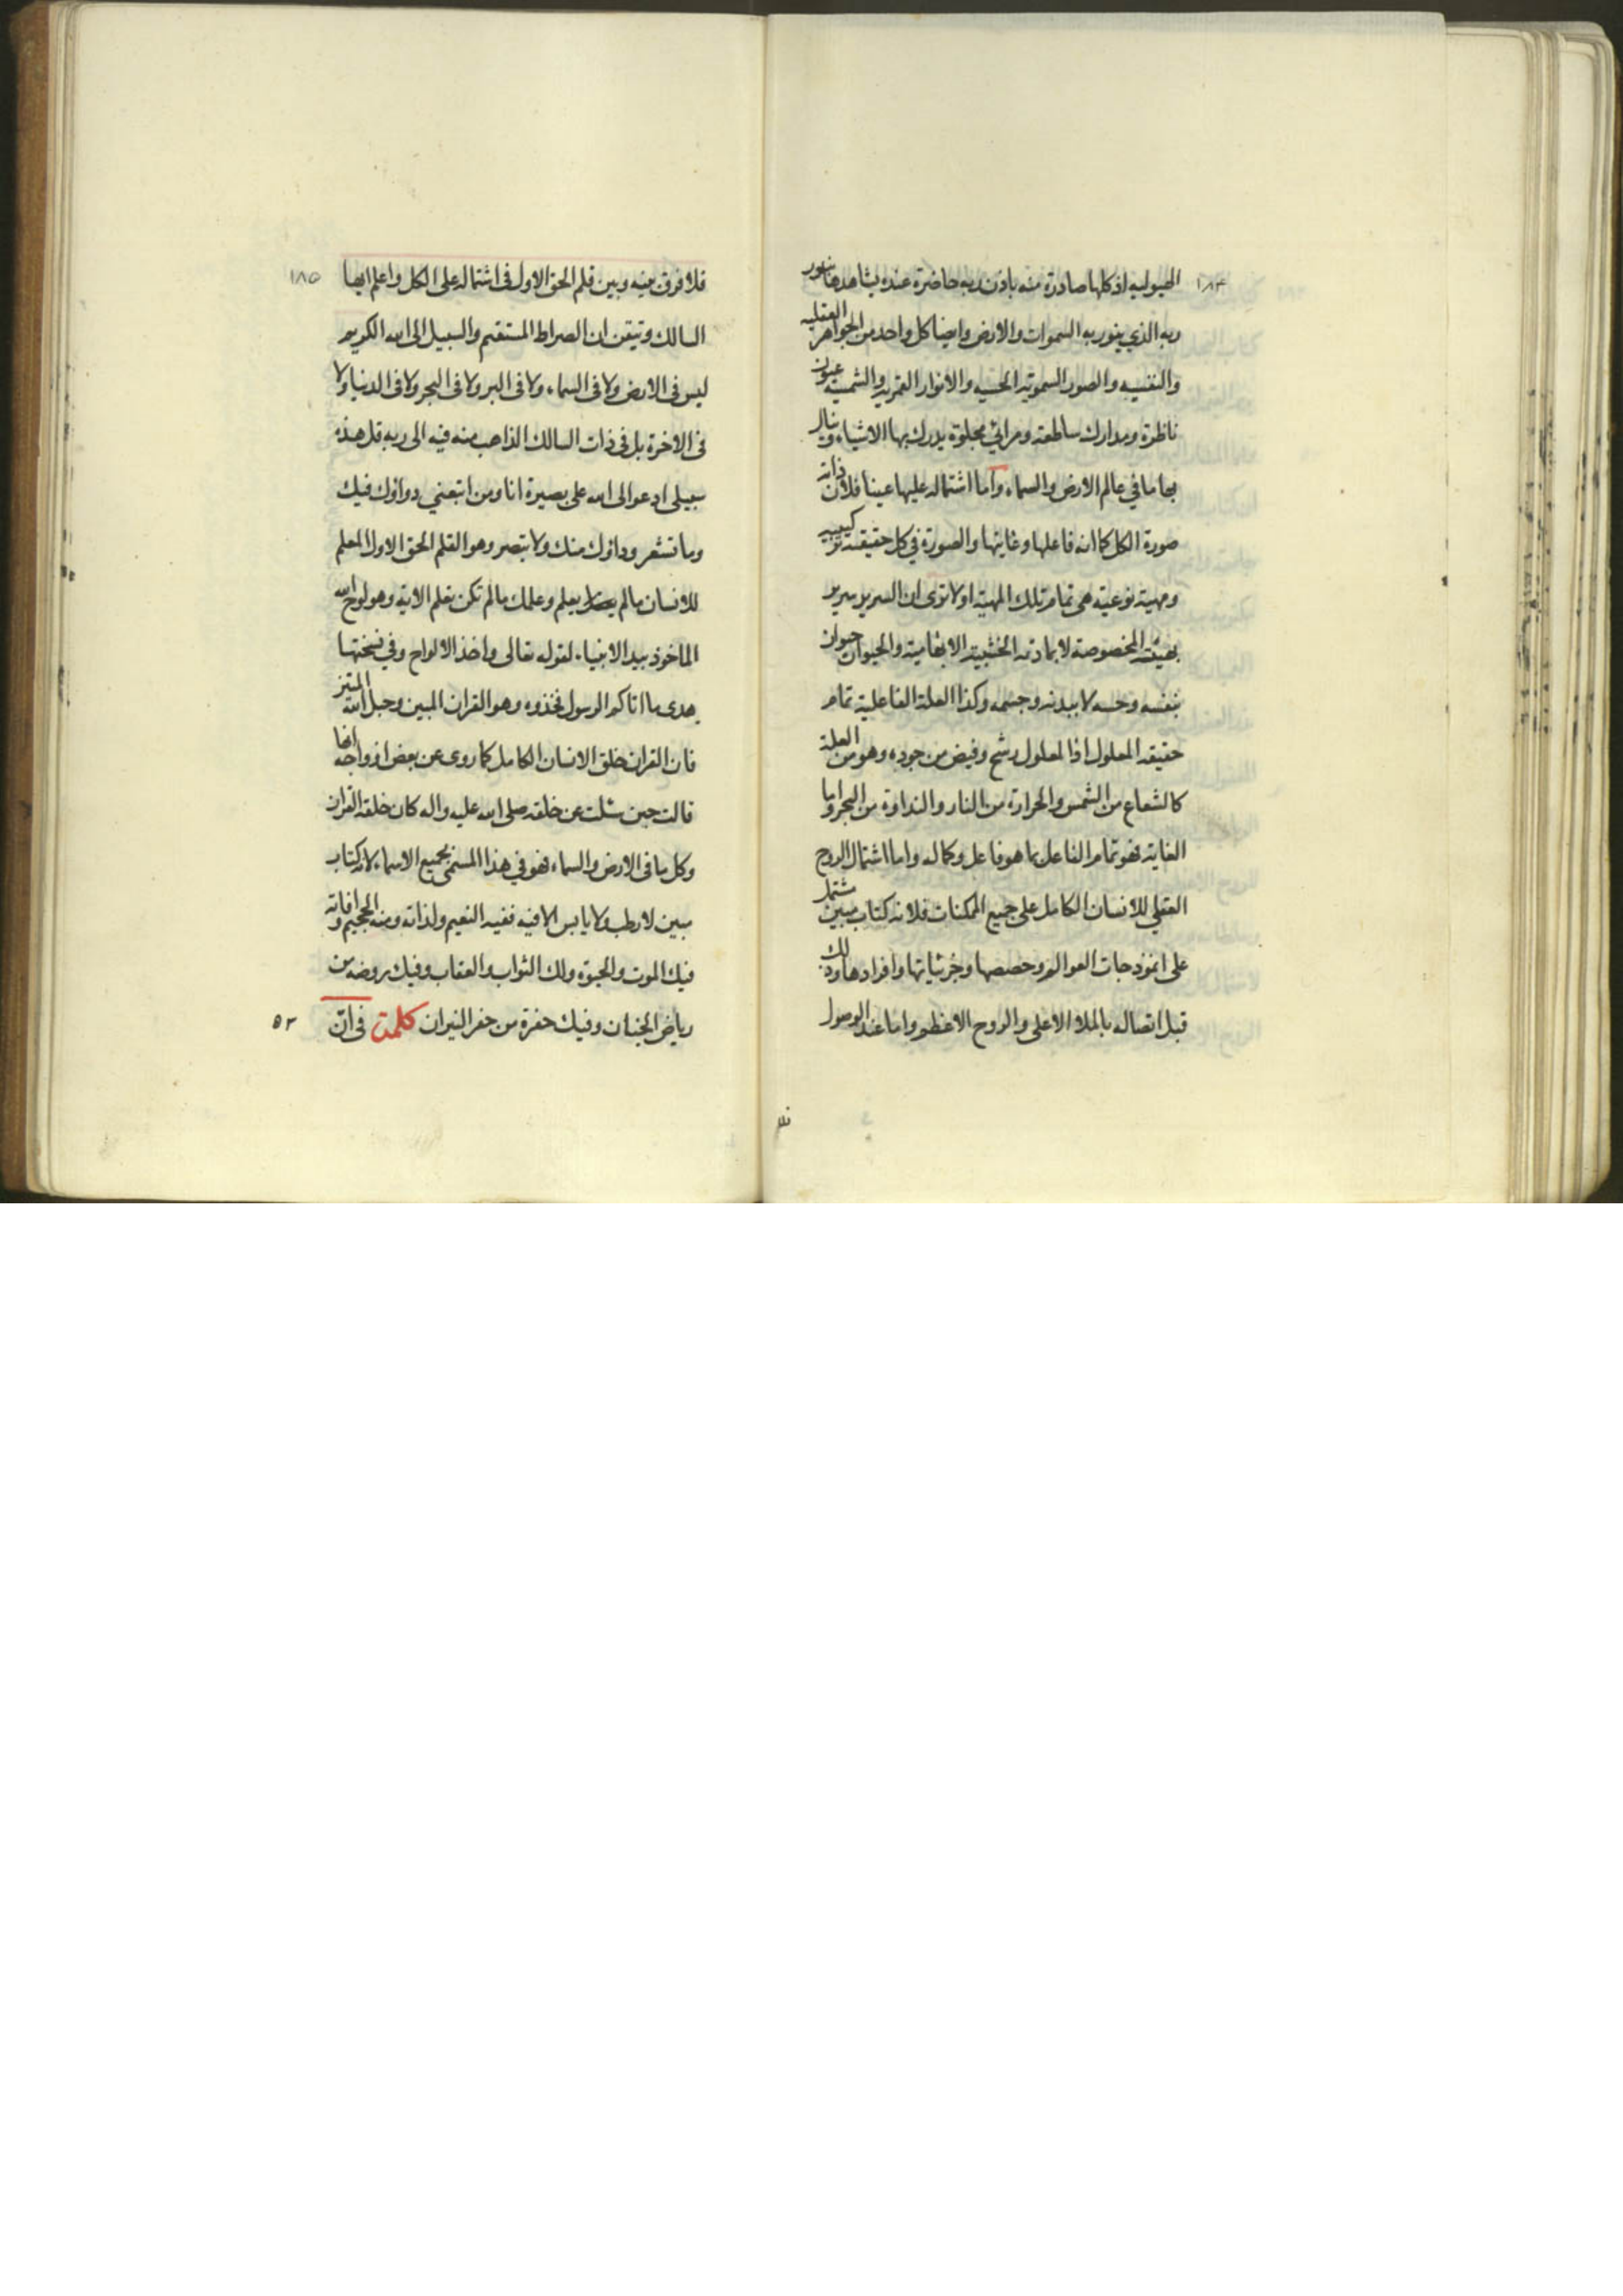 ١٨٤
الهيولیه اذ كلها صادرة منه باذن ربه حاضرة عنده يشاهدها بنور
ربه الذي ينور به السموات والارض وايضا كل واحد من الجواهر العقلیه
والنفسیه والصور السمویه الحسیه والانوار القمریه والشمسیه عیون
ناظرة ومدارك ساطعة ومرائي مجلوة يدرك بها الاشياء وينال
بها ما في عالم الارض والسماء واما اشتماله عليها عينا فلان ذاته
صورة الكل كما انه فاعلها وغايتها والصورة في كل حقيقة تركيبیه
ومهية نوعية هى تمام تلك المهية اولا ترى ان السرير سرير
بهيئته المخصوصة لا بمادته الخشبية الابهامية والحيوان حيوان
بنفسه وحسه لا ببدنه وجسمه وكذا العلة الفاعلية تمام
حقيقة المعلول اذ المعلول رشح وفيض من جوده وهو من العلة
كالشعاع من الشمس والحرارة من النار والنداوة من البحر واما
الغاية فهو تمام الفاعل بما هو فاعل وكماله واما اشتمال الروح
العقلي للانسان الكامل على جميع الممكنات فلانه كتاب مبين مشتمل
على انموذجات العوالم وحصصها وجزئياتها وافرادها وذلك
قبل اتصاله بالملاء الاعلى والروح الاعظم واما عند الوصول
فلا
١٨٥
فلا فرق بينه وبين قلم الحق الاول في اشتماله على الكل واعلم ايها
السالك وتيقن ان الصراط المستقيم والسبيل الى الله الكريم
ليس في الارض ولا في السماء ولا في البر ولا في البحر ولا في الدنيا ولا
في الاخرة بل في ذات السالك الذاهب منه فيه الى ربه قل هذه
سبيلى ادعو الى الله على بصيرة انا ومن اتبعني دواؤك فيك
وما تشعر وداؤك منك ولا تبصر وهو القلم الحق الاول المعلم
للانسان ما لم يعلم وعلمك ما لم تكن تعلم الاية وهو لوح الله
الماخوذ بيد الانبياء لقوله تعالى واخذ الالواح وفي نسختها
هدى ما اتاكم الرسول فخذوه وهو القران المبين وحبل الله المتين
فان القران خلق الانسان الكامل كما روى عن بعض ازواجه انها
قالت حين سئلت عن خلقه صلى الله عليه واله كان خلقه القران
وكل ما في الارض والسماء فهو في هذا المسمى بجميع الاسماء لانه كتاب
مبين لا رطب ولا يابس الا فيه ففيه النعيم ولذاته ومنه الجحيم وافاته
فيك الموت والحيوة ولك الثواب والعقاب وفيك روضة من
رياض الجنان وفيك حفرة من حفر النيران كلمة في ان
٥٣